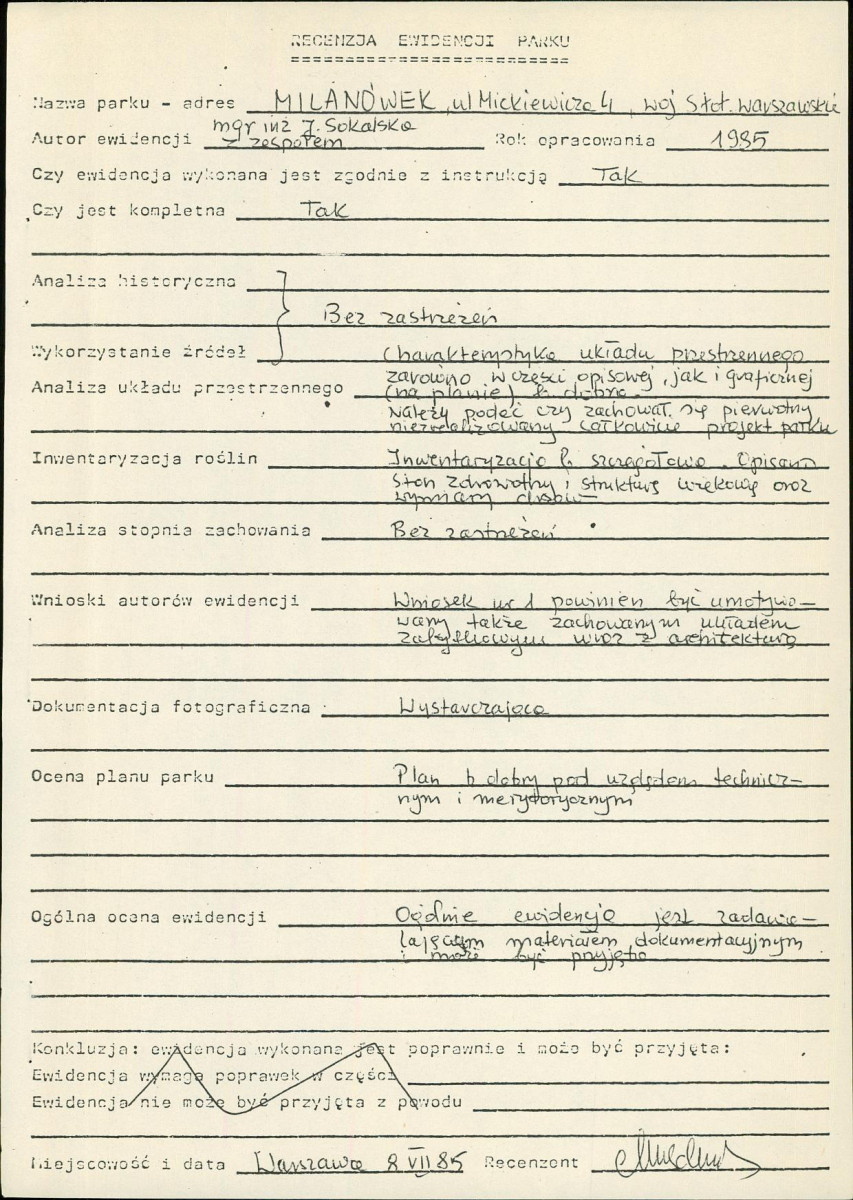 RECENZJA EWIDENCJI PARKU
Nazwa parku - adres MILANÓWEK, ul Mickiewicza 4, woj Stoł. warszawskie
mgr inż J. Sokalska
Autor ewidencji z zespołem Rok opracowania 1985
Czy ewidencja wykonana jest zgodnie z instrukcją Tak
Czy jest kompletna Tak
Analiza historyczna
Bez zastrzeżeń
Wykorzystanie źródeł Charakterystyka układu przestrzennego
zarówno w części opisowej, jak i graficznej
Analiza układu przestrzennego (na planie) b. dobra.
Należy podać czy zachował się pierwotny
niezrealizowany całkowicie projekt parku
Inwentaryzacja roślin Inwentaryzacja b. szczegółowa. Opisano
stan zdrowotny i strukturę wiekową oraz
wymiary drzew
Analiza stopnia zachowania Bez zastrzeżeń
Wnioski autorów ewidencji Wniosek nr 1 powinien być umotywo-
wany także zachowanym układem
zabytkowym wraz z architekturą
Dokumentacja fotograficzna Wystarczająca
Ocena planu parku Plan b dobry pod względem technicz-
nym i merytorycznym
Ogólna ocena ewidencji Ogólnie ewidencja jest zadawa-
lającym materiałem dokumentacyjnym
i może być przyjęta
Konkluzja: ewidencja wykonana jest poprawnie i może być przyjęta:
Ewidencja wymaga poprawek w części
Ewidencja nie może być przyjęta z powodu
Miejscowość i data Warszawa 8 VII 85 Recenzent